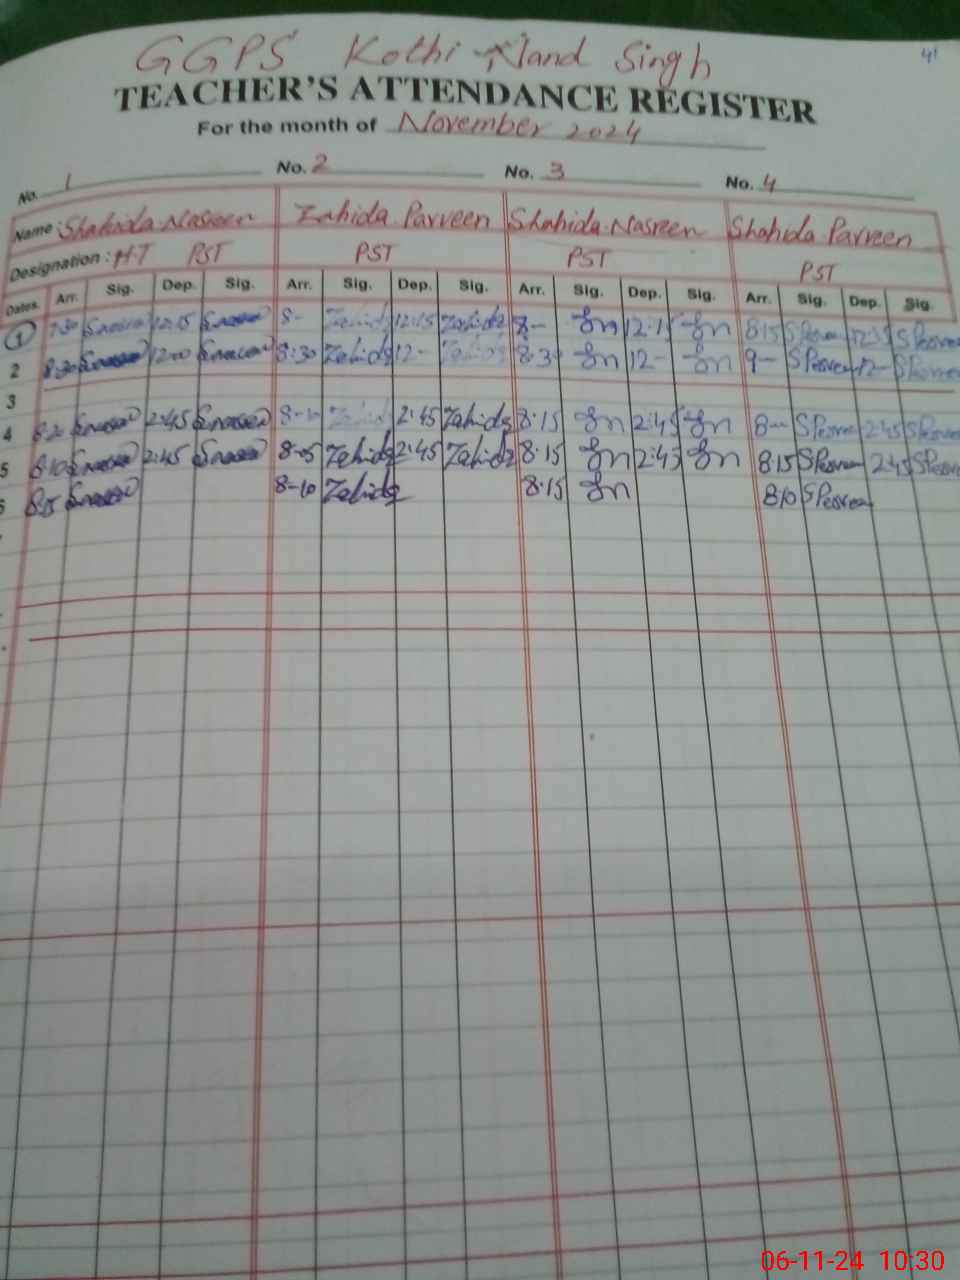 41
GGPS Kothi Nand Singh
TEACHER'S ATTENDANCE REGISTER
For the month of November 2024
No. 1 No. 2 No. 3 No. 4
Name : Shahida Nasreen Zahida Parveen Shahida Nasreen Shahida Parveen
Designation : H.T PST PST PST PST
Dates. Arr. Sig. Dep. Sig. Arr. Sig. Dep. Sig. Arr. Sig. Dep. Sig. Arr. Sig. Dep. Sig.
1 7:30 12:15 8- Zahida 12:15 Zahida 8- 12:15 8:15
2 8:30 12:00 8:30 Zahida 12- Zahida 8:30 12- 9- 12-
3
4 8:20 2:45 8-10 Zahida 2:45 Zahida 8:15 2:45 8- 2:45
5 8:10 2:45 8-05 Zahida 2:45 Zahida 8:15 2:45 8:15 2:45
6 8:15 8-10 Zahida 8:15 8:10
06-11-24 10:30